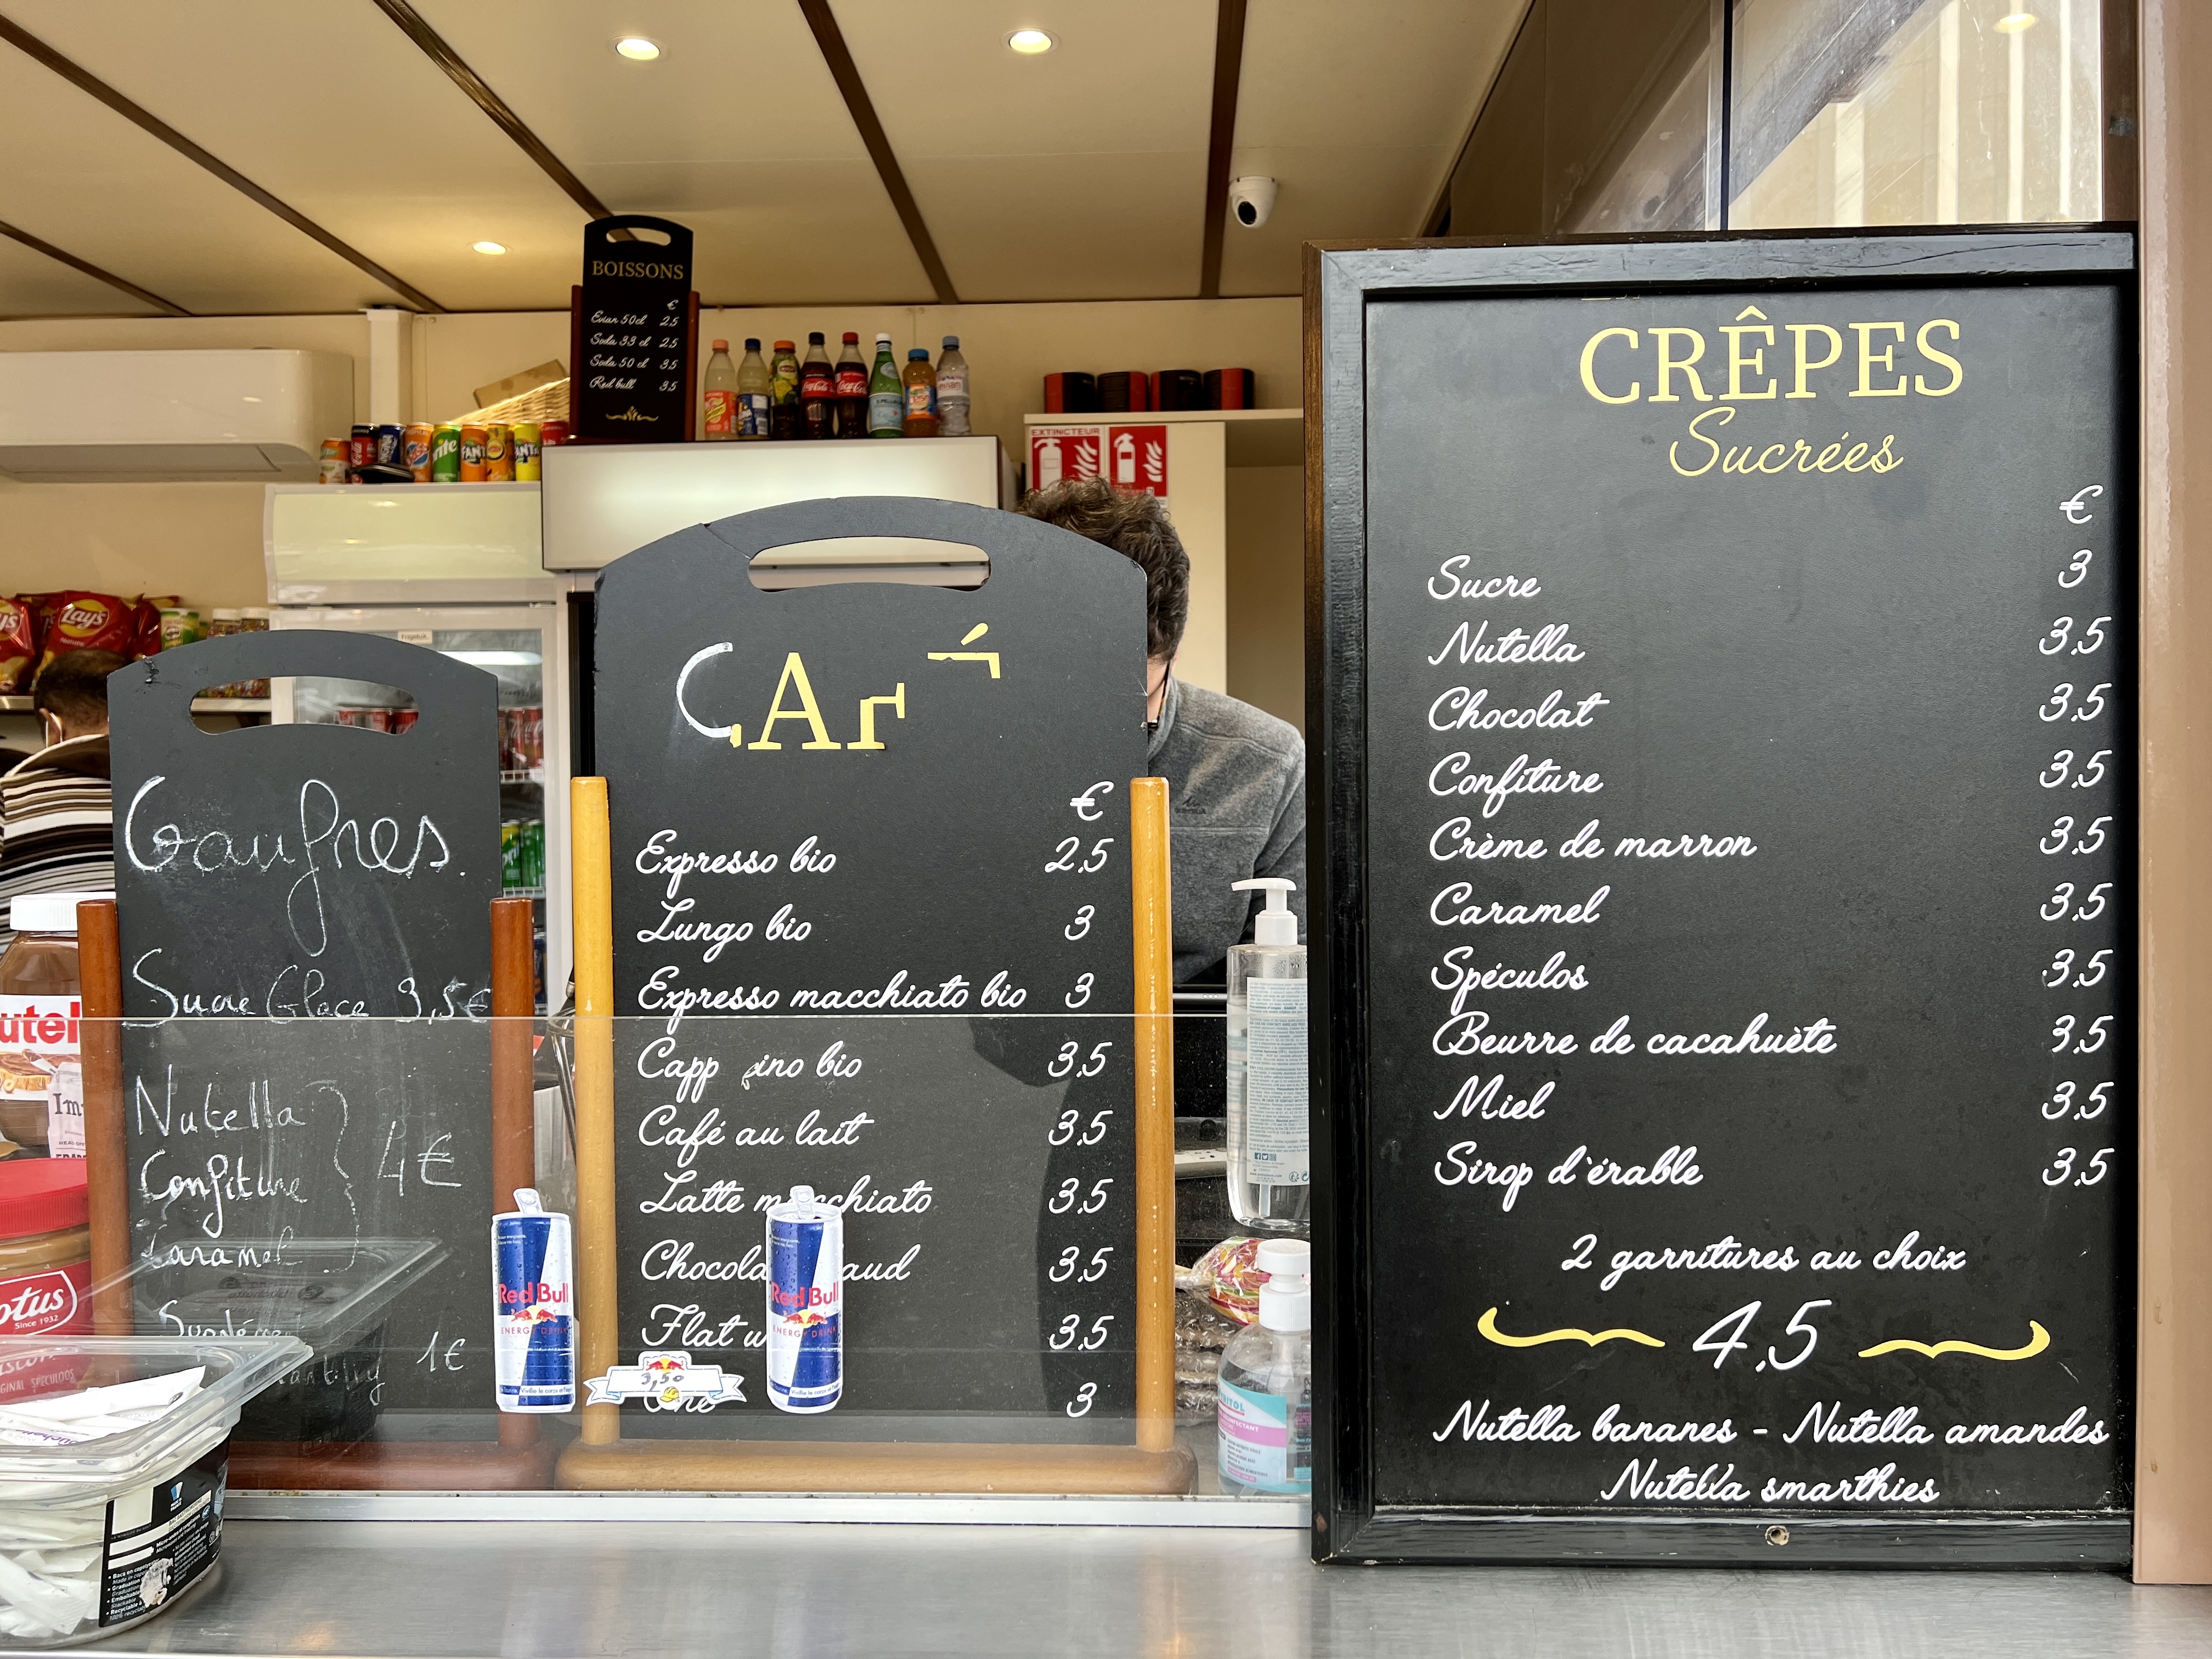 BOISSONS
€
Evian 50cl 2,5
Soda 33 cl 2,5
Soda 50 cl 3,5
Red bull 3,5
EXTINCTEUR
Lay's
Gaufres.
Sucre Glace 3,5€
Nutella
Confiture 4€
Caramel
1€
CAF
€
Expresso bio 2,5
Lungo bio 3
Expresso macchiato bio 3
Capp ino bio 3,5
Café au lait 3,5
Latte m cchiato 3,5
Chocola aud 3,5
Flat w 3,5
3
Red Bull
ENERGY DRINK
3,50
Red Bull
ENERGY DRINK
utel
otus
Since 1932
CRÊPES
Sucrées
€
Sucre 3
Nutella 3,5
Chocolat 3,5
Confiture 3,5
Crème de marron 3,5
Caramel 3,5
Spéculos 3,5
Beurre de cacahuète 3,5
Miel 3,5
Sirop d'érable 3,5
2 garnitures au choix
4,5
Nutella bananes - Nutella amandes
Nutella smarthies